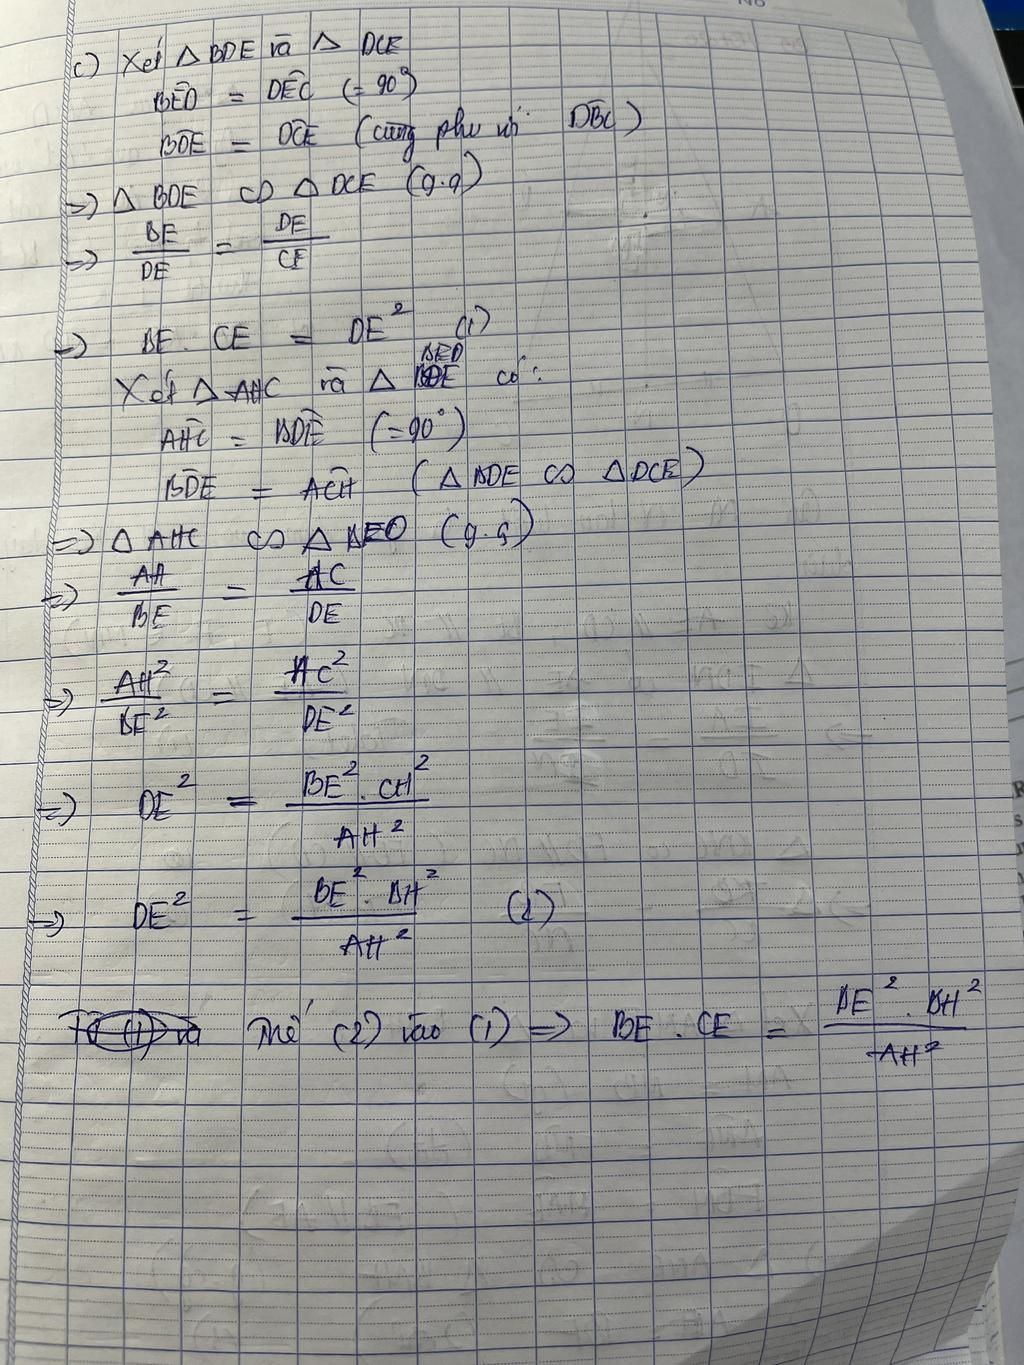 c) Xét △ BDE và △ DCE
BED = DEC (= 90°)
BDE = DCE (cùng phụ với DBC)
=> △ BDE ∽ △ DCE (g.g)
=> BE/DE = DE/CE
=> BE . CE = DE² (1)
Xét △ AHC và △ BED có:
AHC = BDE (= 90°)
BDE = ACH (△ BDE ∽ △ DCE)
=> △ AHC ∽ △ BED (g.g)
=> AH/BE = HC/DE
=> AH²/BE² = HC²/DE²
=> DE² = BE² . CH²/AH²
=> DE² = BE² . BH²/AH² (2)
Thế (2) vào (1) => BE . CE = BE² . BH²/AH²